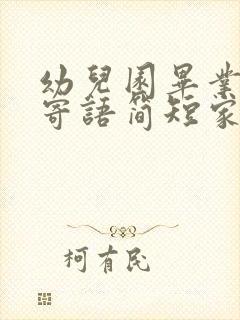 幼兒園畢業
寄語简短家
柯有民